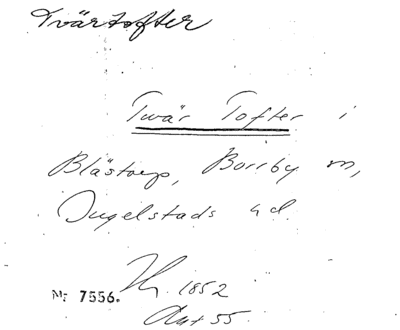 Tvärtofter
Twär Tofter i
Blästorp, Borrby m,
Ingelstads hd.
1852
Nr 7556.
Akt 55